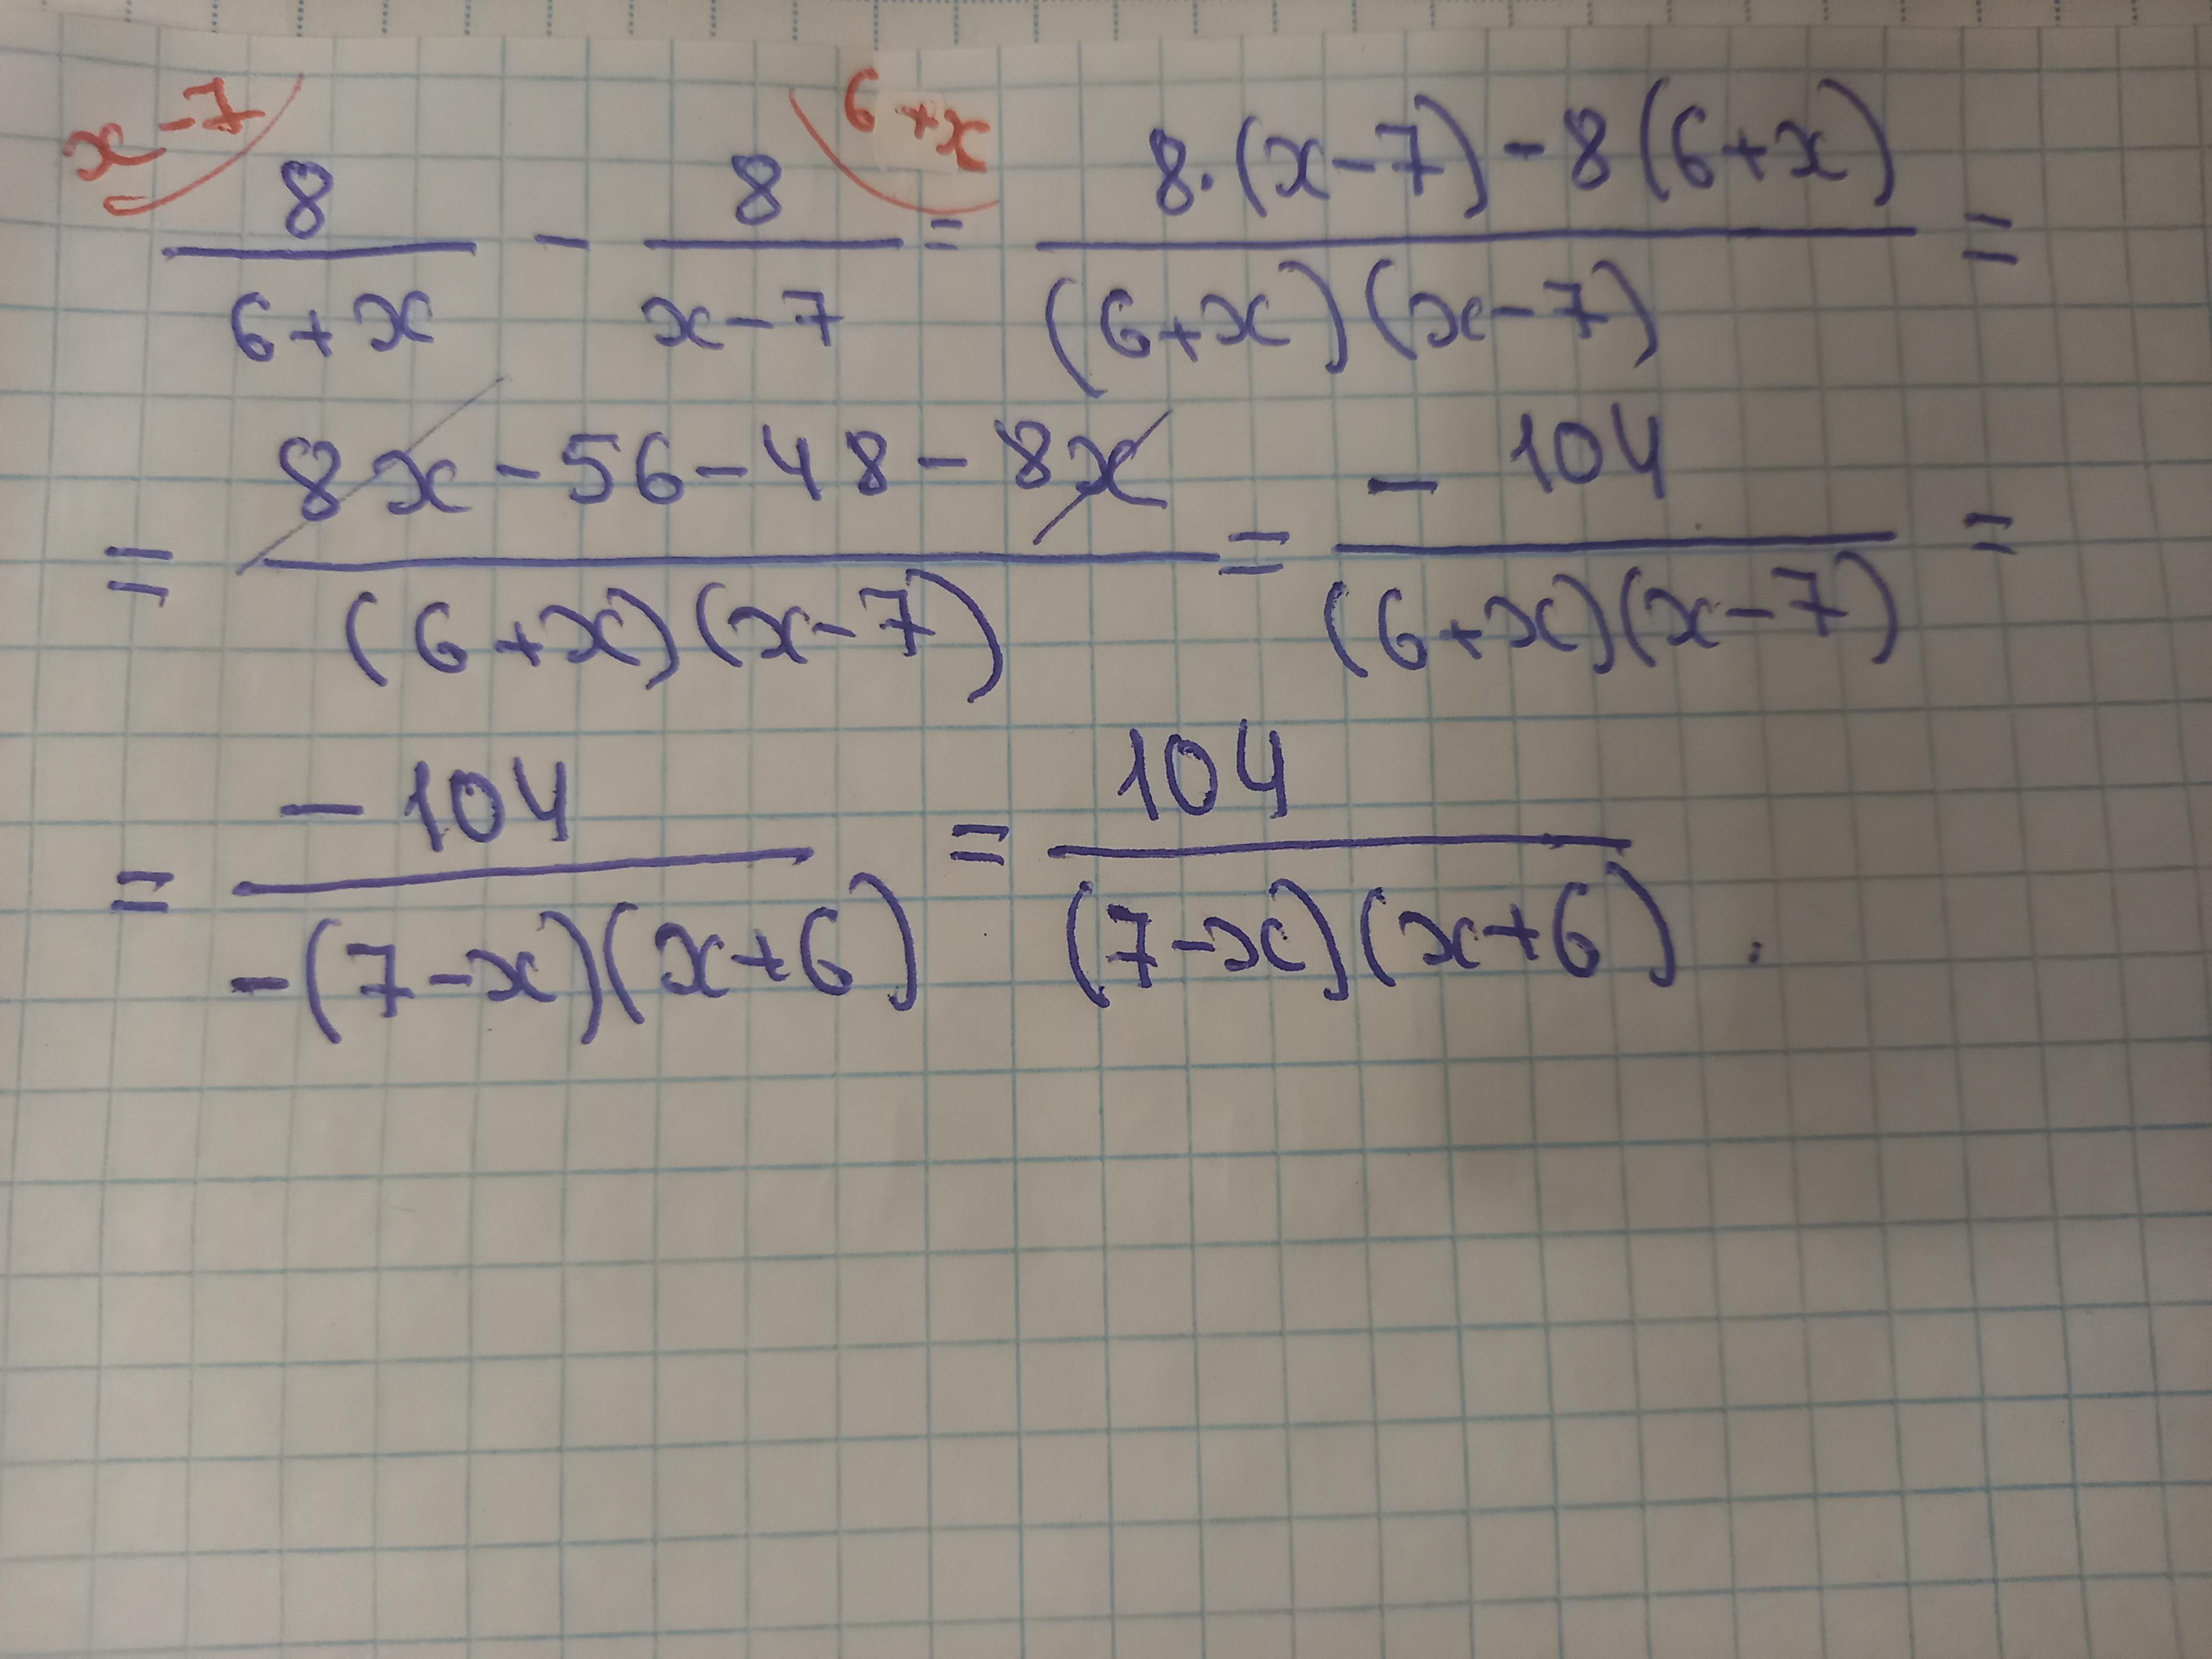 x - 7        6 + x
8/(6 + x) - 8/(x - 7) = (8·(x - 7) - 8(6 + x))/((6 + x)(x - 7)) =
= (8x - 56 - 48 - 8x)/((6 + x)(x - 7)) = - 104/((6 + x)(x - 7)) =
= - 104/(-(7 - x)(x + 6)) = 104/((7 - x)(x + 6)).